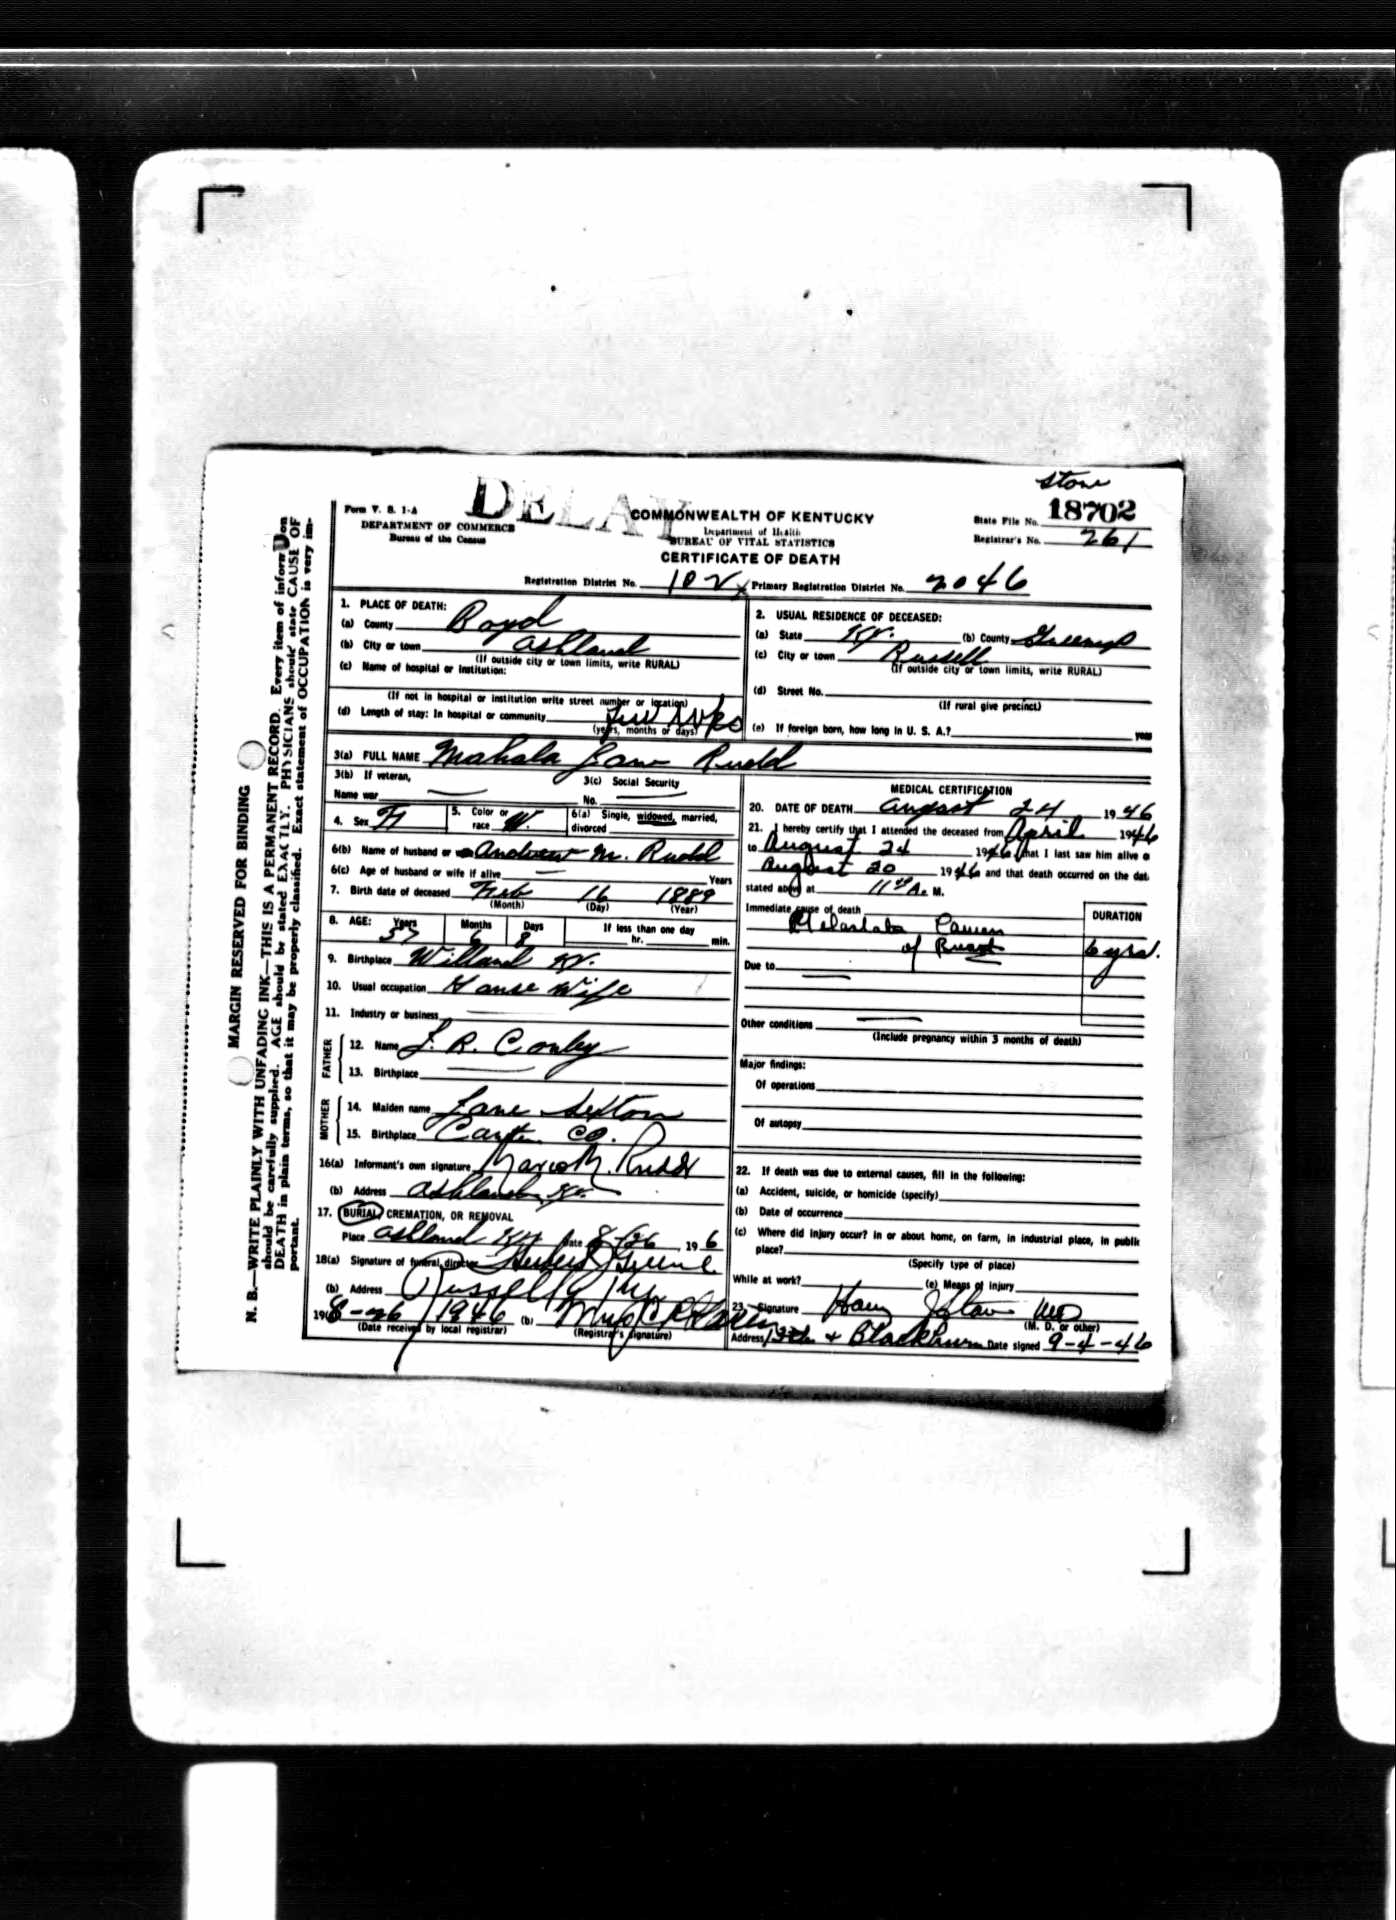 Stone
Form V. S. 1-A
DELAY
COMMONWEALTH OF KENTUCKY
State File No. 18702
DEPARTMENT OF COMMERCE
Bureau of the Census
Department of Health
BUREAU OF VITAL STATISTICS
Registrar's No. 261
CERTIFICATE OF DEATH
Registration District No. 102 Primary Registration District No. 2046
1. PLACE OF DEATH:
(a) County Boyd
(b) City or town Ashland
(If outside city or town limits, write RURAL)
(c) Name of hospital or institution:
(If not in hospital or institution write street number or location)
(d) Length of stay: In hospital or community few wks
(years, months or days)
2. USUAL RESIDENCE OF DECEASED:
(a) State Ky. (b) County Greenup
(c) City or town Russell
(If outside city or town limits, write RURAL)
(d) Street No.
(If rural give precinct)
(e) If foreign born, how long in U. S. A.? year
3(a) FULL NAME Mahala Jane Rudd
3(b) If veteran,
Name war
3(c) Social Security
No.
4. Sex F
5. Color or
race W.
6(a) Single, widowed, married,
divorced
6(b) Name of husband or Andrew M. Rudd
6(c) Age of husband or wife if alive Years
7. Birth date of deceased Feb 16 1889
(Month) (Day) (Year)
8. AGE: Years Months Days If less than one day
57 6 8 hr. min.
9. Birthplace Willard Ky.
10. Usual occupation House Wife
11. Industry or business
FATHER
12. Name J. R. Conley
13. Birthplace
MOTHER
14. Maiden name Jane Sexton
15. Birthplace Carter Co.
16(a) Informant's own signature M. Rudd
(b) Address Ashland Ky.
17. BURIAL, CREMATION, OR REMOVAL
Place Ashland Ky Date 8/26, 19 6
18(a) Signature of funeral director Greene
(b) Address Russell Ky
19(a) 8-26 1946 (b) Mrs
(Date received by local registrar) (Registrar's signature)
MEDICAL CERTIFICATION
20. DATE OF DEATH August 24 19 46
21. I hereby certify that I attended the deceased from April 1946
to August 24 1946, that I last saw him alive o
August 20 1946 and that death occurred on the dat
stated above at 11 A. M.
Immediate cause of death
DURATION
Cancer
of Breast 6 yrs.
Due to
Other conditions
(Include pregnancy within 3 months of death)
Major findings:
Of operations
Of autopsy
22. If death was due to external causes, fill in the following:
(a) Accident, suicide, or homicide (specify)
(b) Date of occurrence
(c) Where did injury occur? In or about home, on farm, in industrial place, in public
place?
(Specify type of place)
While at work? (e) Means of injury
23. Signature MD
(M. D. or other)
Address 13th & Blackburn Date signed 9-4-46
MARGIN RESERVED FOR BINDING
N. B.—WRITE PLAINLY WITH UNFADING INK—THIS IS A PERMANENT RECORD. Every item of information
should be carefully supplied. AGE should be stated EXACTLY. PHYSICIANS should state CAUSE OF
DEATH in plain terms, so that it may be properly classified. Exact statement of OCCUPATION is very im-
portant.